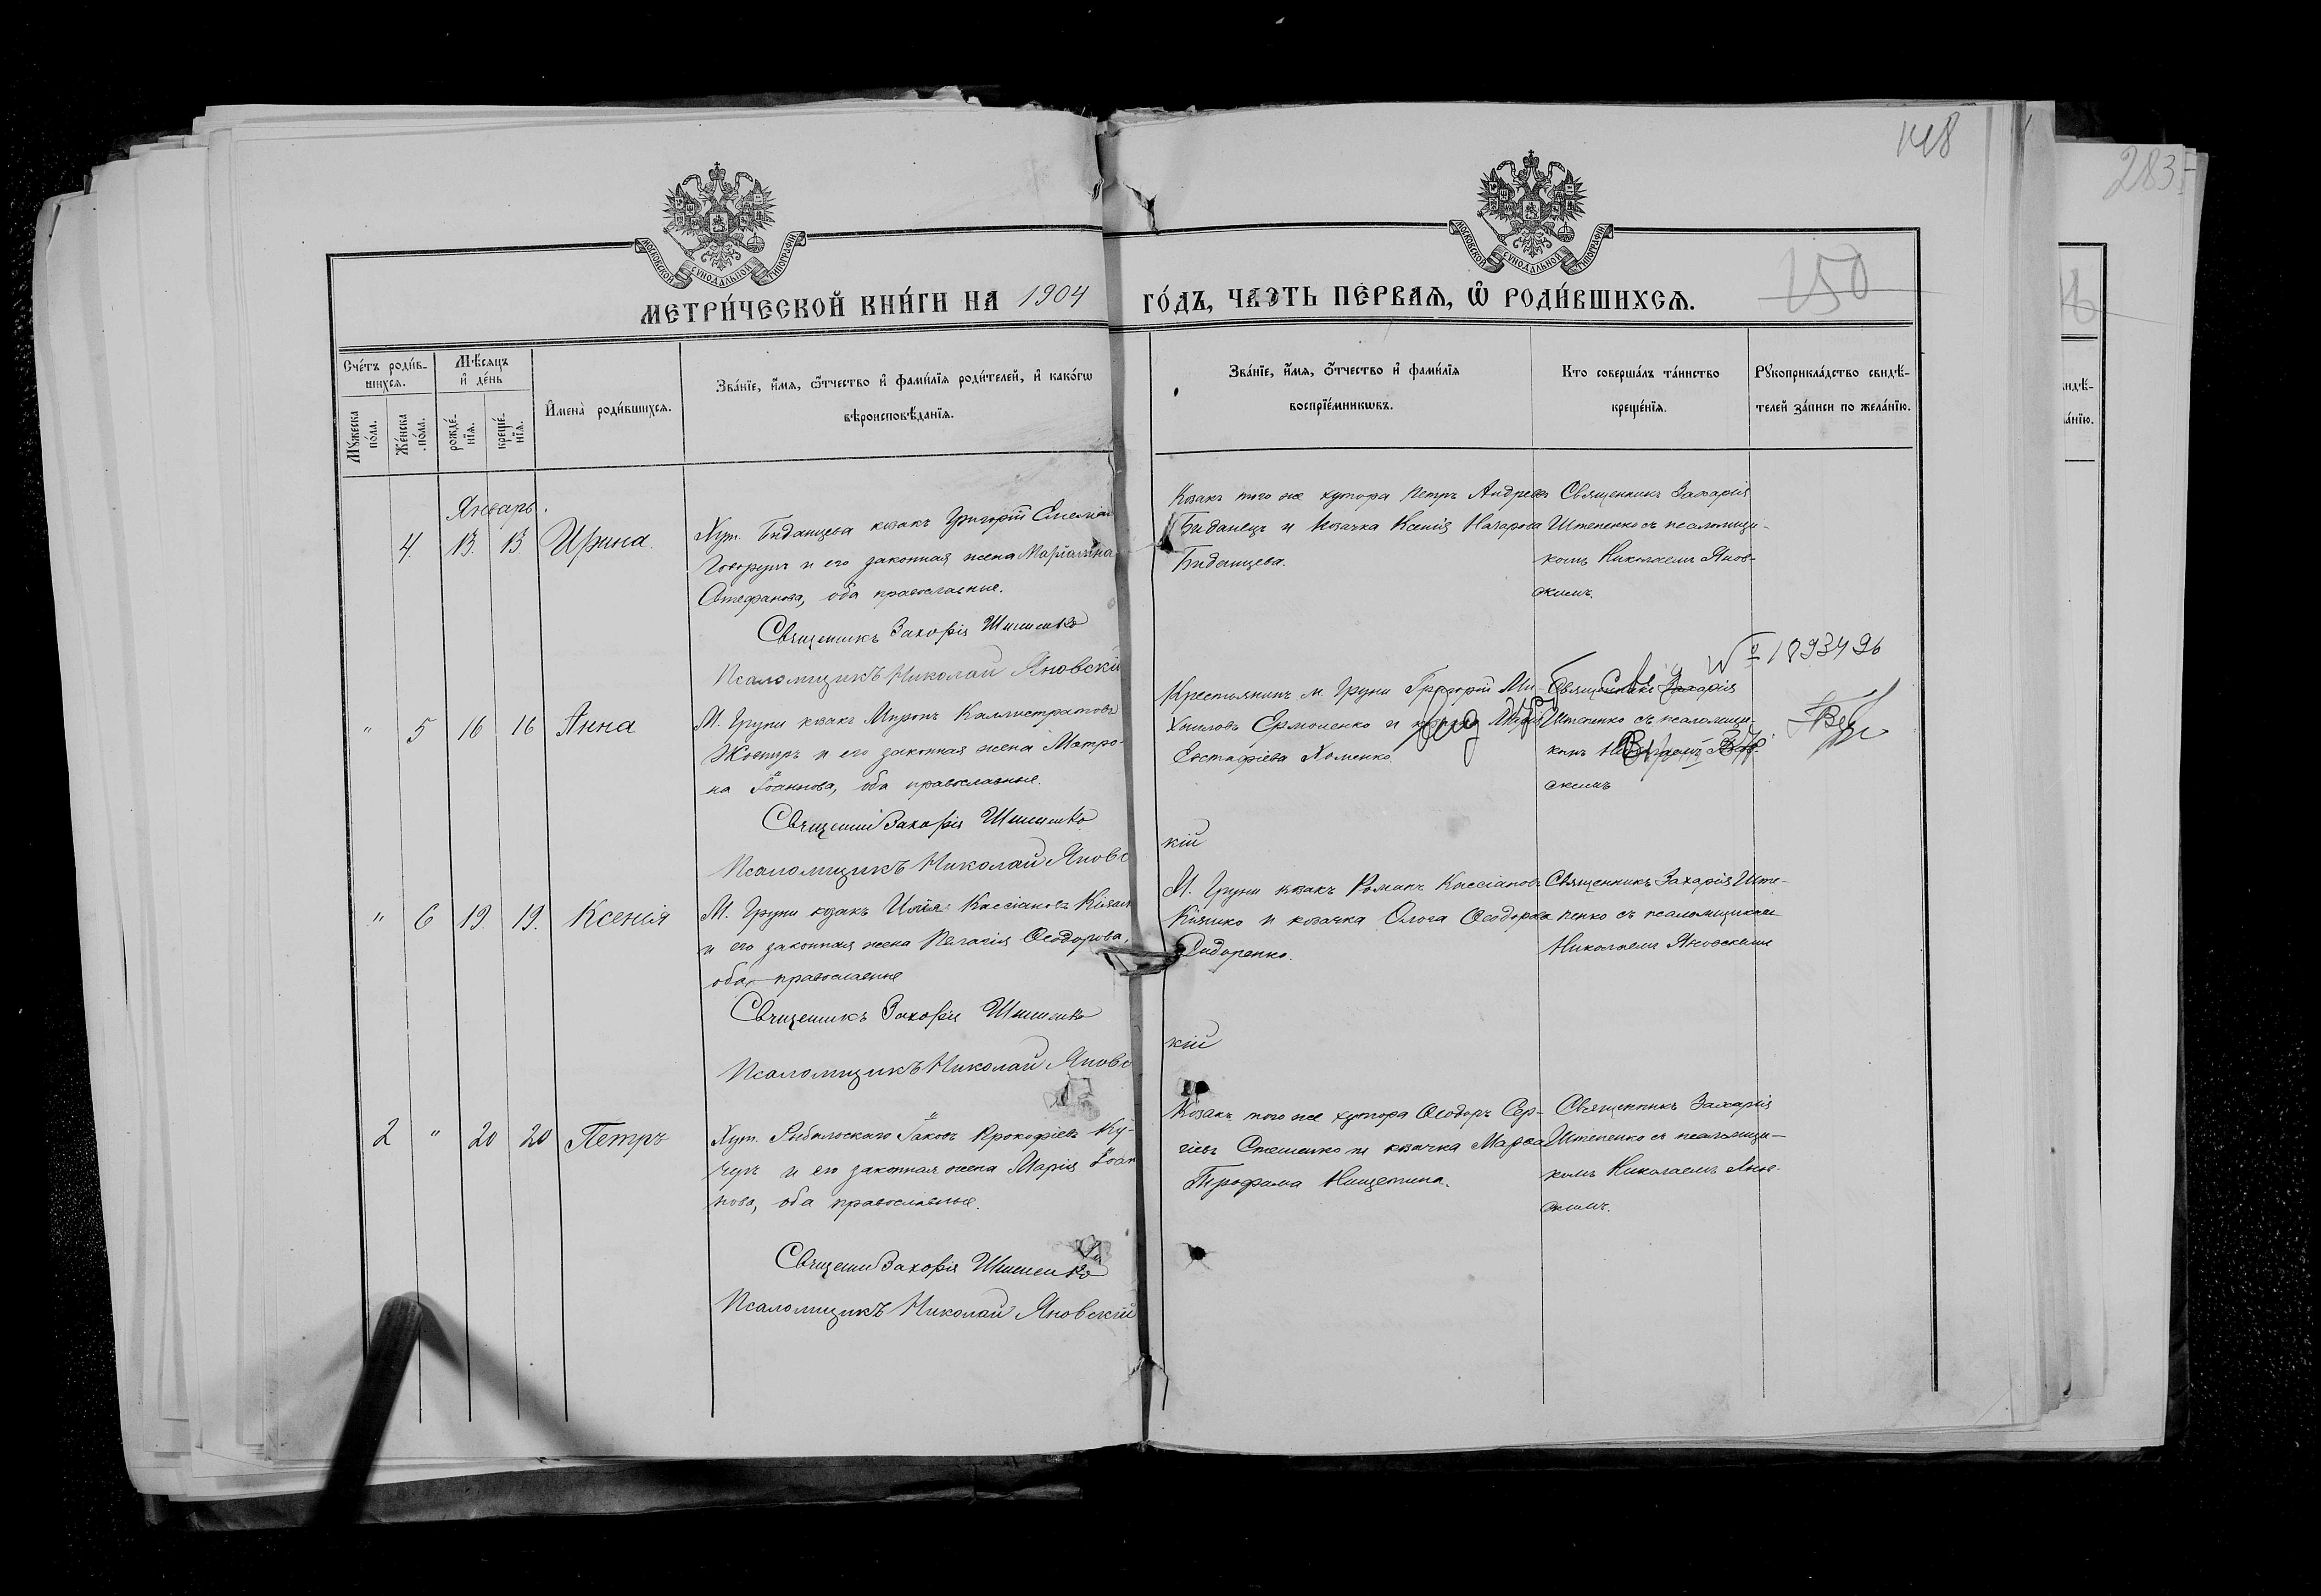 148
283
МОСКОВСКОЙ СѴНОДАЛЬНОЙ ТИПОГРАФІИ
МОСКОВСКОЙ СѴНОДАЛЬНОЙ ТИПОГРАФІИ
150
МЕТРИ́ЧЕСКОЙ КНИ́ГИ НА 1904 ГО́ДЪ, ЧАСТЬ ПЕ́РВАЯ, Ѡ҆ РОДИ́ВШИХСЯ.
Сче́тъ роди́в-
шихся.
Му́жеска по́ла.
Же́нска по́ла.
Мѣ́сяцъ
и҆ де́нь
рожде́-
нїя.
креще́-
нїя.
И҆мена̀ роди́вшихся.
Зва́нїе, и҆́мя, ѻ҆́тчество и҆ фами́лїя роди́телей, и҆ како́гѡ
вѣроисповѣ́данїя.
Зва́нїе, и҆́мя, ѻ҆́тчество и҆ фами́лїя
воспрїе́мникѡвъ.
Кто соверша́лъ та́инство
креще́нїя.
Рукоприкла́дство свидѣ́-
телей за́писи по жела́нїю.
Январь.
4. 13. 13. Ирина.
Хут. Биданцева козакъ Григорій
Говорунъ и его законная жена Маріанна
Стефанова, оба православные.
Священникъ Захарія
Псаломщикъ Николай Яновскій
Козакъ того же хутора Петръ Андреевъ
Биданецъ и козачка Ксенія Назарова
Биданцева.
Священникъ Захарія
съ псаломщи-
комъ Николаемъ Янов-
скимъ.
" 5 16 16 Анна
М. Груни козакъ Миронъ Каллистратовъ
и его законная жена Матро-
на Іоаннова, оба православные.
Священ Захарія
Псаломщикъ Николай Яновс
кій
Крестьянинъ м. Груни Григорій Ми-
хаиловъ Ермоленко и
Евстафіева Хоменко.
Священникъ Захарія
съ псаломщи-
комъ
скимъ
№ 1893496
" 6 19. 19. Ксенія
М. Груни козакъ Илія Кассіановъ
и его законная жена Пелагія Ѳеодорова,
оба православные
Священникъ Захарія
Псаломщикъ Николай Яновс
кій
М. Груни козакъ Романъ Кассіановъ
и козачка Ѳеодорова
Сидоренко.
Священникъ Захарія
съ псаломщикомъ
Николаемъ Яновскимъ
2 " 20 20 Петръ
Хут. Іаковъ Прокофіевъ Ку-
и его законная жена Марія Іоан
нова, оба православные.
Священ Захарія
Псаломщикъ Николай Яновскій
Козакъ того же хутора Ѳеодоръ Сер-
гіевъ и козачка Марѳа
Трофима
Священникъ Захарія
съ псаломщи-
комъ Николаемъ Янов-
скимъ.